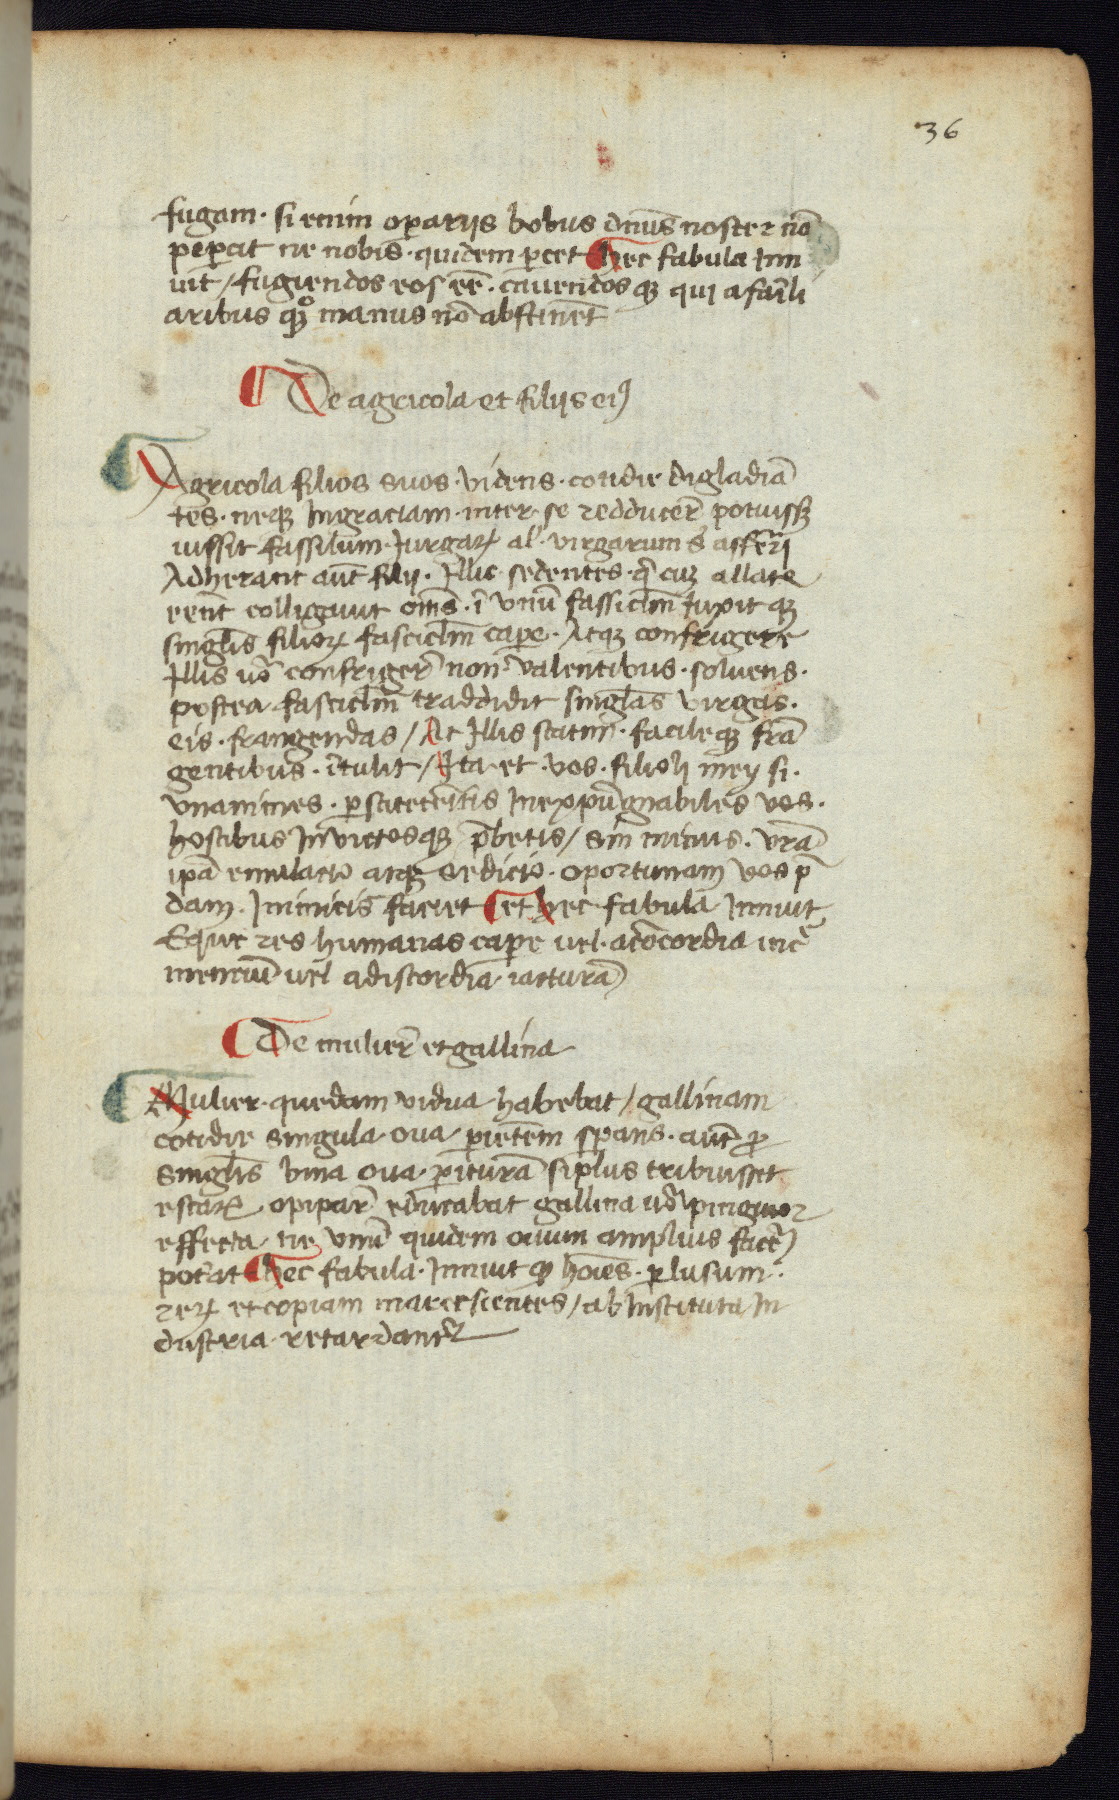 36
fugam · si enim oꝑarijs bobus dn̄us noster nō
peꝑcit ne nobis · quidem ꝑcet hec fabula Inn
uit / fugiendos eos eē · cauendos qꝫ qui a fam̄li
aribus qꝫ manus nō abstinēt
De agricola et filijs eiꝰ
Agricola filios suos · videns · cotidie digladiā
tes · neqꝫ Ingraciam · inter · se redducer̄ potuissꝫ
iussit fassilum · Iurgaꝝ al' virgarum s' afferi
Adherant aūt filij · Illic sedentes · q̄ cuꝫ allate
eent colligauit om̄s · ī vnū fassiclm̄ Iuxit qꝫ
singl̄is filioꝝ fasciclm̄ caꝑe · Atqꝫ confrigere
Illis uō confriger̄ non valentibus · soluens ·
postea fasciclm̄ traddidit singlās virgas ·
eis · frangendas / At Illis statim · facileqꝫ frā
gentibus · ītulit / Ita et vos · filioli mey si ·
vnanimes · ꝑstiteritis Inexpūgnabiles vos ·
hostibus Inuictosqꝫ p̄betis / sin minus · vrā
ipā emulatio atqꝫ sedicio · oportunam vos p̄
dam · Inimicis faciet et hec fabula Innuit
Eque res humanas caꝑe uel · acōcordia inc̄
mentū uel adiscordiā · iacturā
De mulier̄ et gallina
Mulier · quedam vidua habebat / gallinam
cotidie singula oua ꝑietem sperans · aūt ꝓ
singl̄is bina oua · ꝑiturā si plus tribuisset
escaꝝ opipar̄ educabat gallina ud' pinguior
effecta ne vnū quidem ouum amplius facer̄
pot'at hec fabula · Innuit qꝫ hoīes · ꝑ lusum ·
reꝝ et copiam marcescientes / ab Instituta In
dustria retardantur